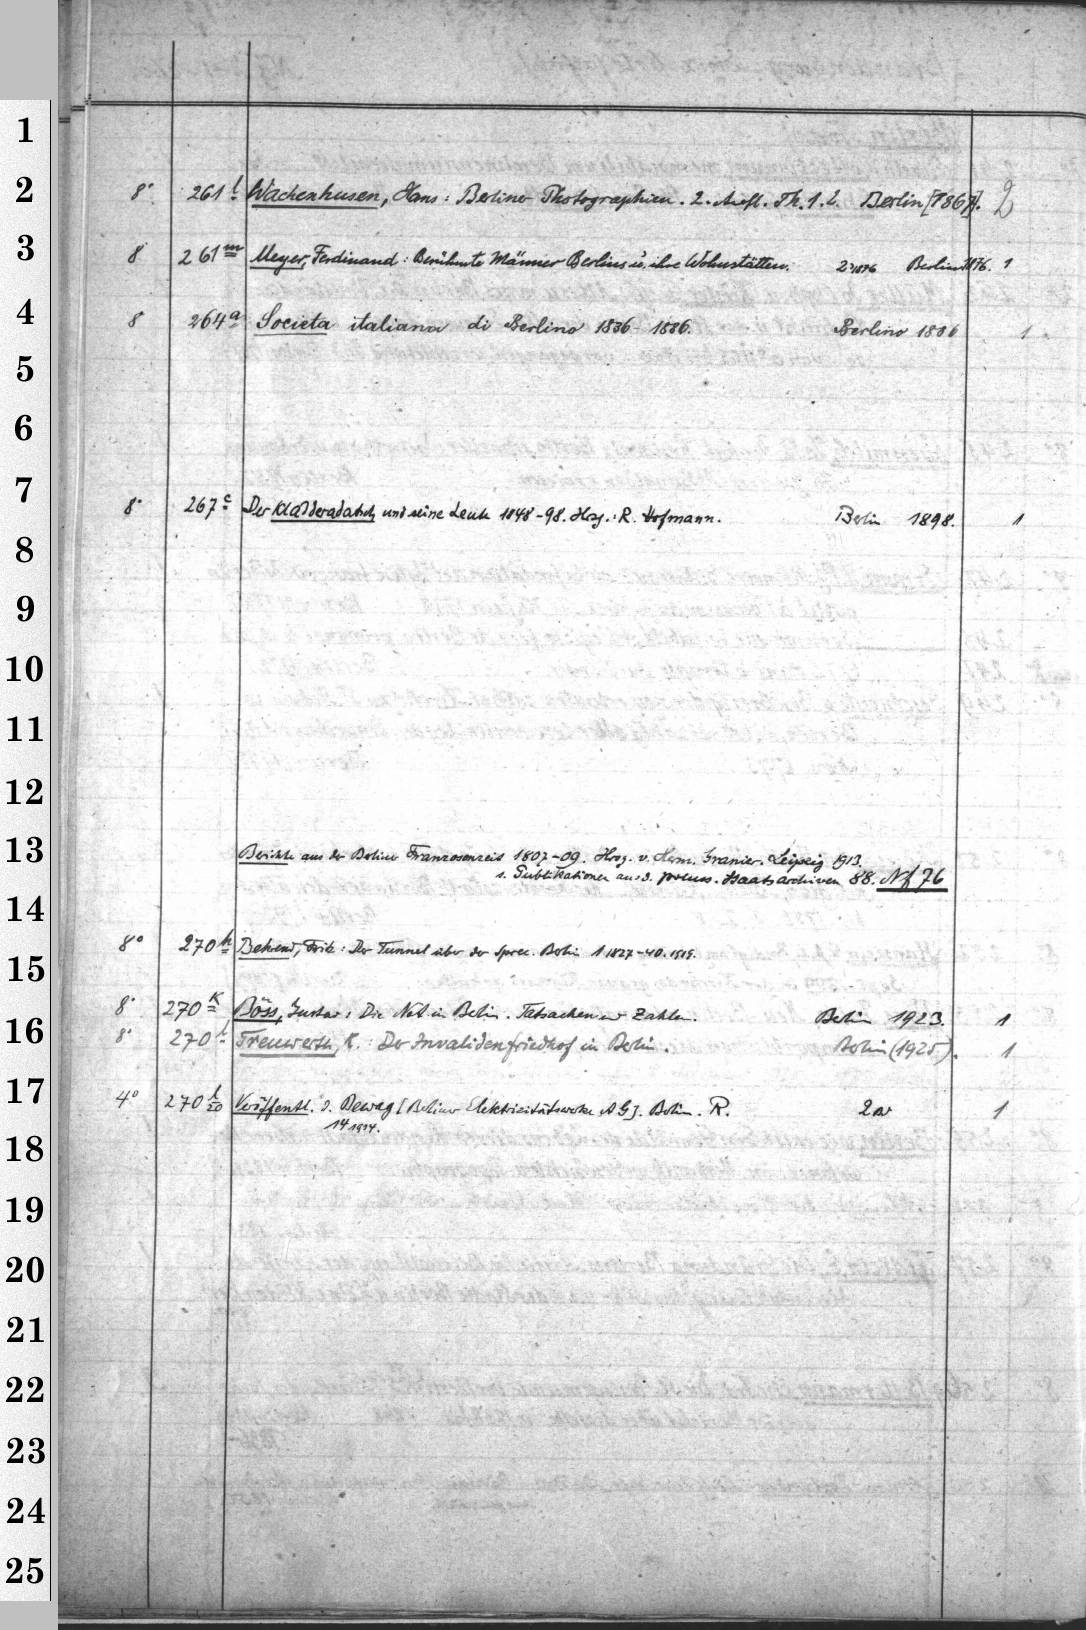 1
2
3
4
5
6
7
8
9
10
11
12
13
14
15
16
17
18
19
20
21
22
23
24
25
8° 261 l Wachenhusen, Hans: Berliner Photographien. 2. Aufl. Th. 1. 2. Berlin [1867]. 2
8 261 m Meyer, Ferdinand: Berühmte Männer Berlins u. ihre Wohnstätten. 2. 1876 Berlin 1876. 1
8 264 a Societa italiana di Berlino 1836-1886. Berlino 1886 1
8° 267 c Der Kladderadatsch und seine Leute 1848-98. Hrsg.: R. Hofmann. Berlin 1898. 1
Berichte aus der Berliner Franzosenzeit 1807-09. Hrsg. v. Herm. Granier. Leipzig 1913.
s. Publikationen aus d. preuss. Staatsarchiven 88. Nf 76
8° 270 h Behrend, Fritz: Der Tunnel über der Spree. Berlin 1 1827-40. 1919.
8° 270 k Böss, Gustav: Die Not in Berlin. Tatsachen u Zahlen. Berlin 1923. 1
8° 270 l Treuwerth, K.: Der Invalidenfriedhof in Berlin. Berlin (1925). 1
4° 270 l/20 Veröffentl. d. Bewag [Berliner Elektricitätswerke AG]. Berlin. R. 1
14 1934.